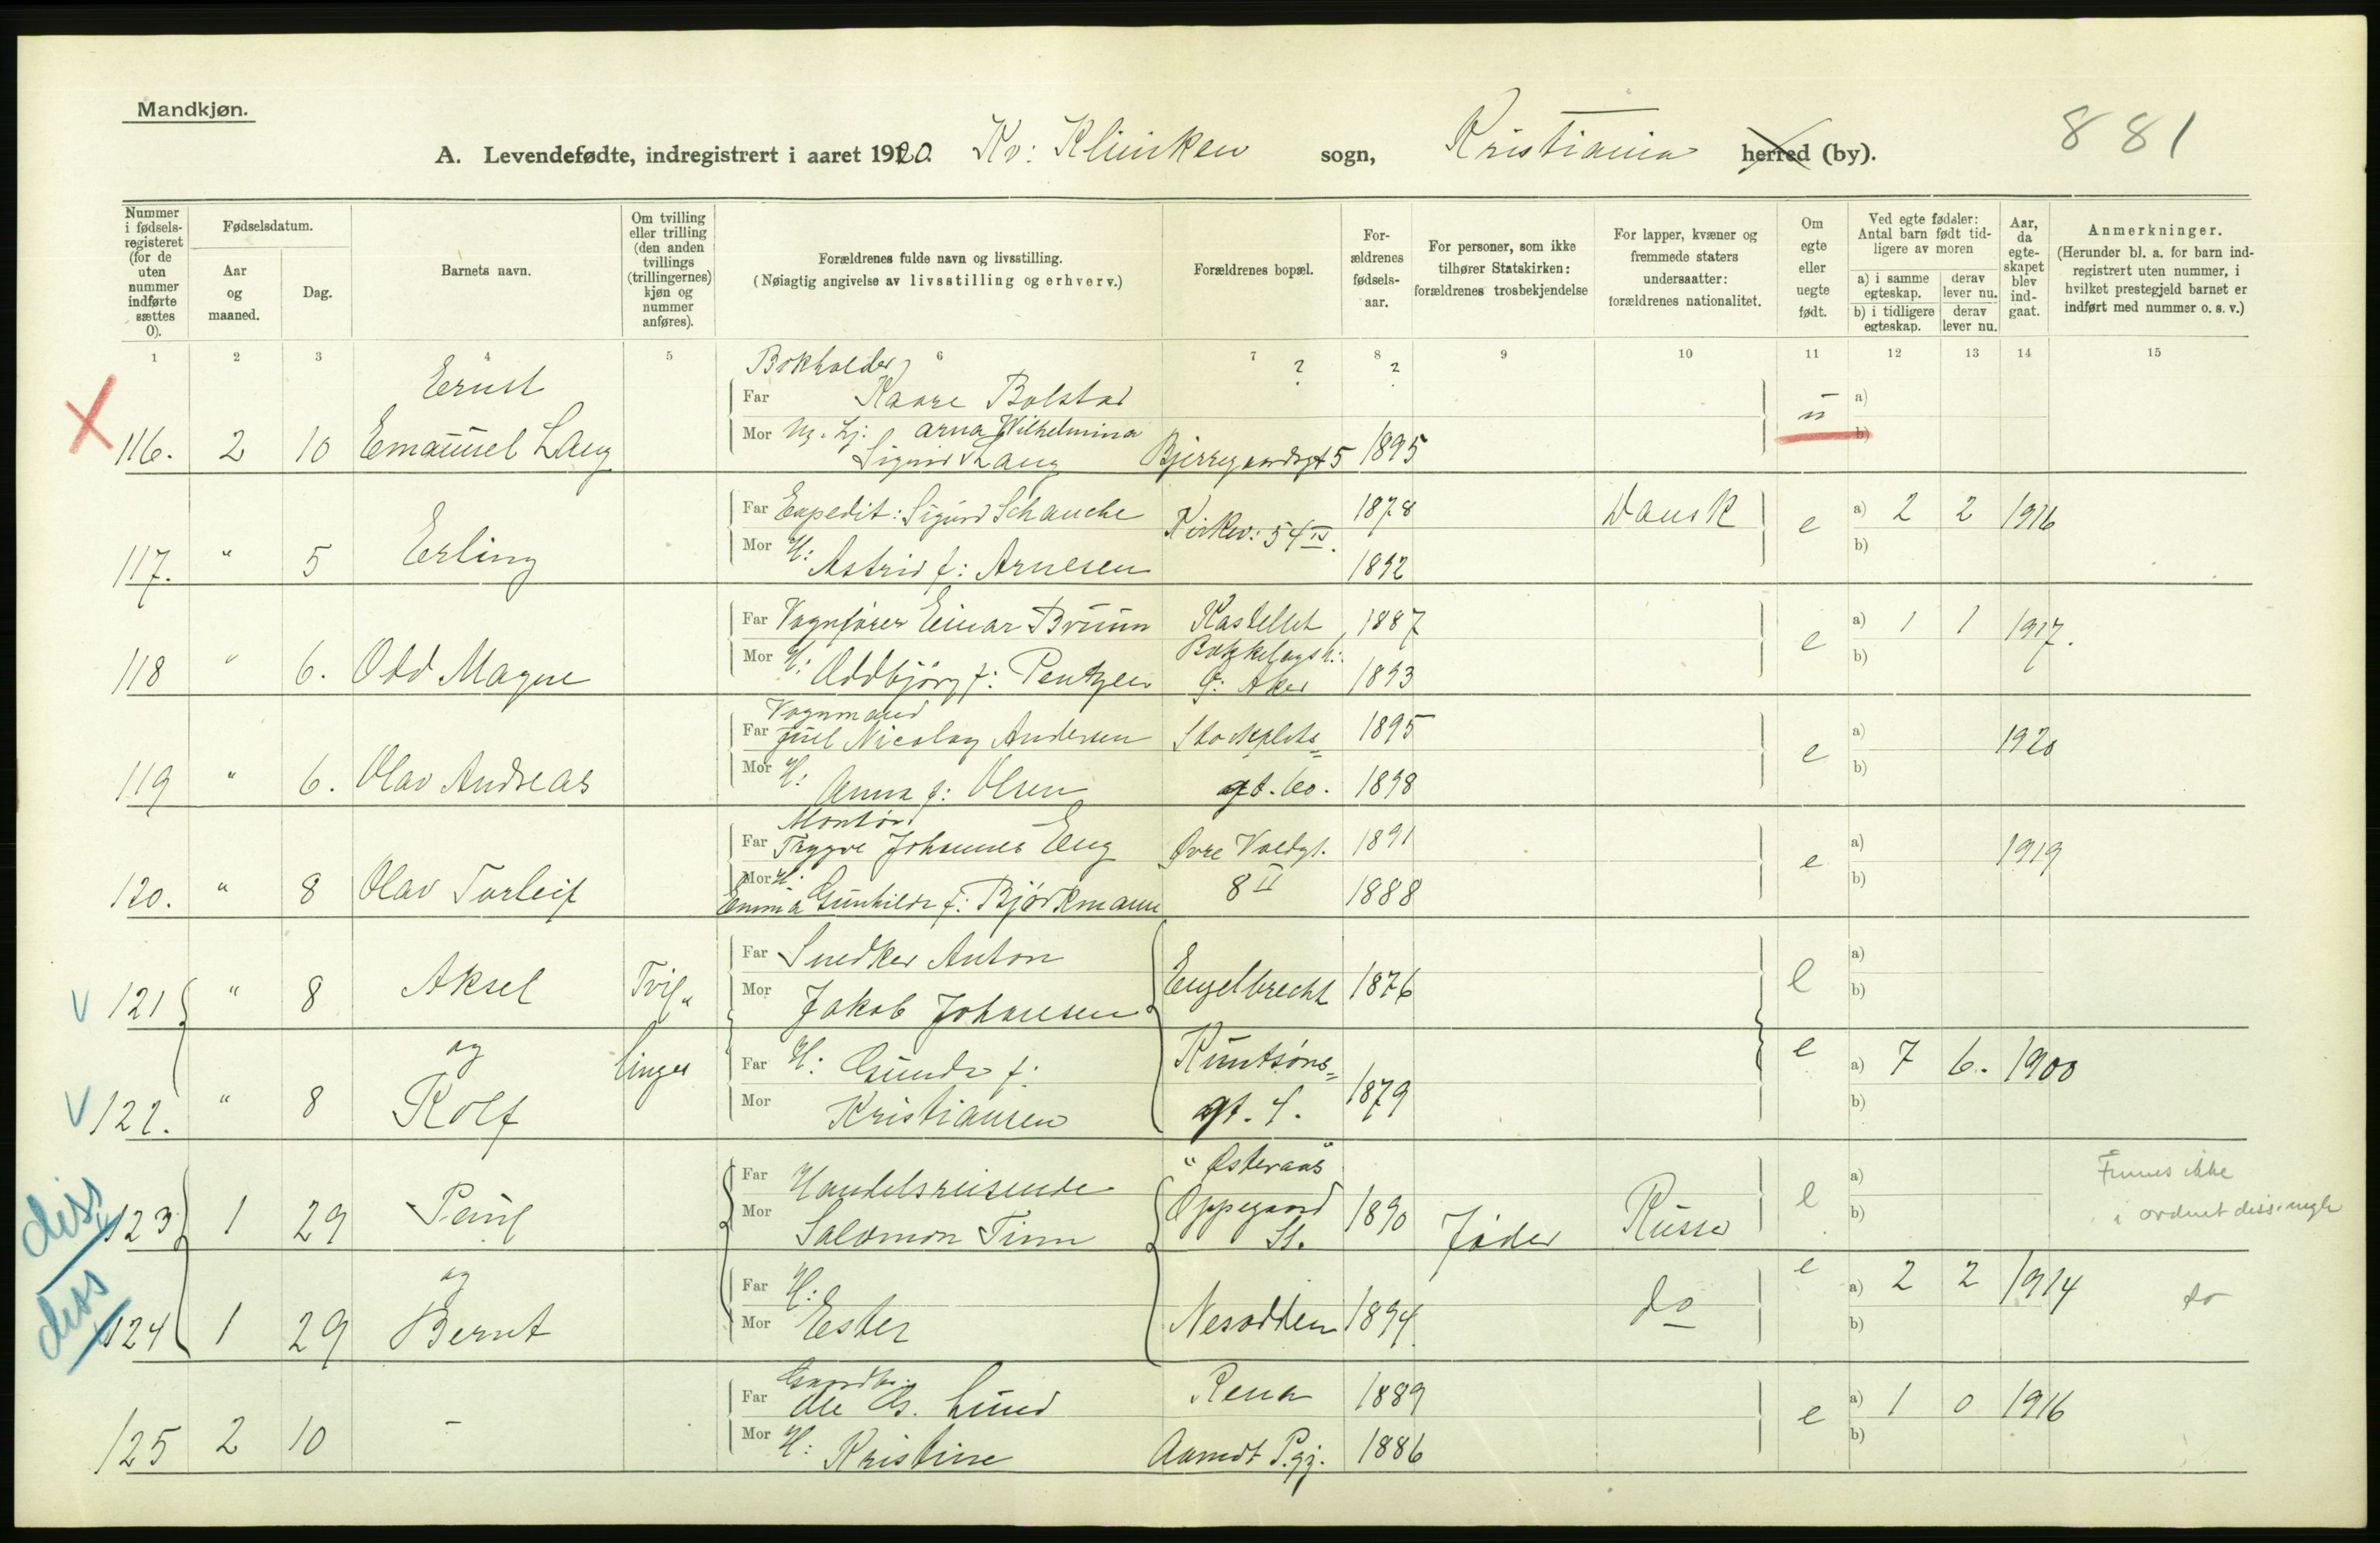 Mandkjøn.
881
A. Levendefødte, indregistrert i aaret 1920. Kv: Kliniken sogn, Kristiania herred (by).
Nummer i fødsels-registeret (for de uten nummer indførte sættes 0).
Fødselsdatum.
Aar og maaned.
Dag.
Barnets navn.
Om tvilling eller trilling (den anden tvillings (trillingernes) kjøn og nummer anføres).
Forældrenes fulde navn og livsstilling.
(Nøiagtig angivelse av livsstilling og erhverv.)
Forældrenes bopæl.
For-ældrenes fødsels-aar.
For personer, som ikke tilhører Statskirken: forældrenes trosbekjendelse
For lapper, kvæner og fremmede staters undersaatter: forældrenes nationalitet.
Om egte eller uegte født.
Ved egte fødsler: Antal barn født tid-ligere av moren
a) i samme egteskap. derav lever nu.
b) i tidligere egteskap. derav lever nu.
Aar, da egte-skapet blev ind-gaat.
Anmerkninger.
(Herunder bl. a. for barn ind-registrert uten nummer, i hvilket prestegjeld barnet er indført med nummer o. s. v.)
1 2 3 4 5 6 7 8 9 10 11 12 13 14 15
Ernst Bokholder ? ?
Far Kaare Bolstad u a)
116. 2 10 Emanuel Lang Mor Arna Wilhelmina b)
Sigrid Lang Bjerregaardsgt 5 1895
Far Expedit: Sigurd Schauche Kirkev: 54 IV. 1878 Dansk e a) 2 2 1916
117. " 5 Erling Mor H: Astrid f: Arnesen 1892 b)
Far Vognfører Einar Bruun Kastellet 1887 e a) 1 1 1917.
118 " 6. Odd Magne Mor H: Oddbjørg f: Pentzen Aker 1893 b)
Vognmand
Far Juel Nicolay Andersen 1895 e a) 1920
119 " 6. Olav Andreas Mor H: Anna f: Olsen gt. 60. 1898 b)
Montør
Far Trygve Johannes Eng Øvre Voldgt. 1891 e a) 1919
120. " 8 Olav Torleif Mor H: Emma Gunhilda f: Bjørkmann 8 II 1888 b)
Far Snedker Anton a)
V 121 " 8 Aksel Tvil" Mor Jakob Johansen Engelbrecht 1876 e b)
og linger Far H: Gunda f: Knutsøns= e a) 7 6. 1900
V 122. " 8 Rolf Mor Kristiansen gt. 4. 1879 b)
" Østeraas
diss 123 1 29 Paul Far Handelsreisende Oppegaard a) Finnes ikke
Mor Salomon Finn St. 1890 Jøder Russer e b) i ordnet diss.
og Far H: e a) 2 2 1914 do
diss 124 1 29 Bernt Mor Ester Nesodden 1894. do b)
Gaardbr.
Far Ole G. Lund Rena 1889 e a) 1 0 1916
125 2 10 - Mor H: Kristine Aamodt P.gj. 1886 b)